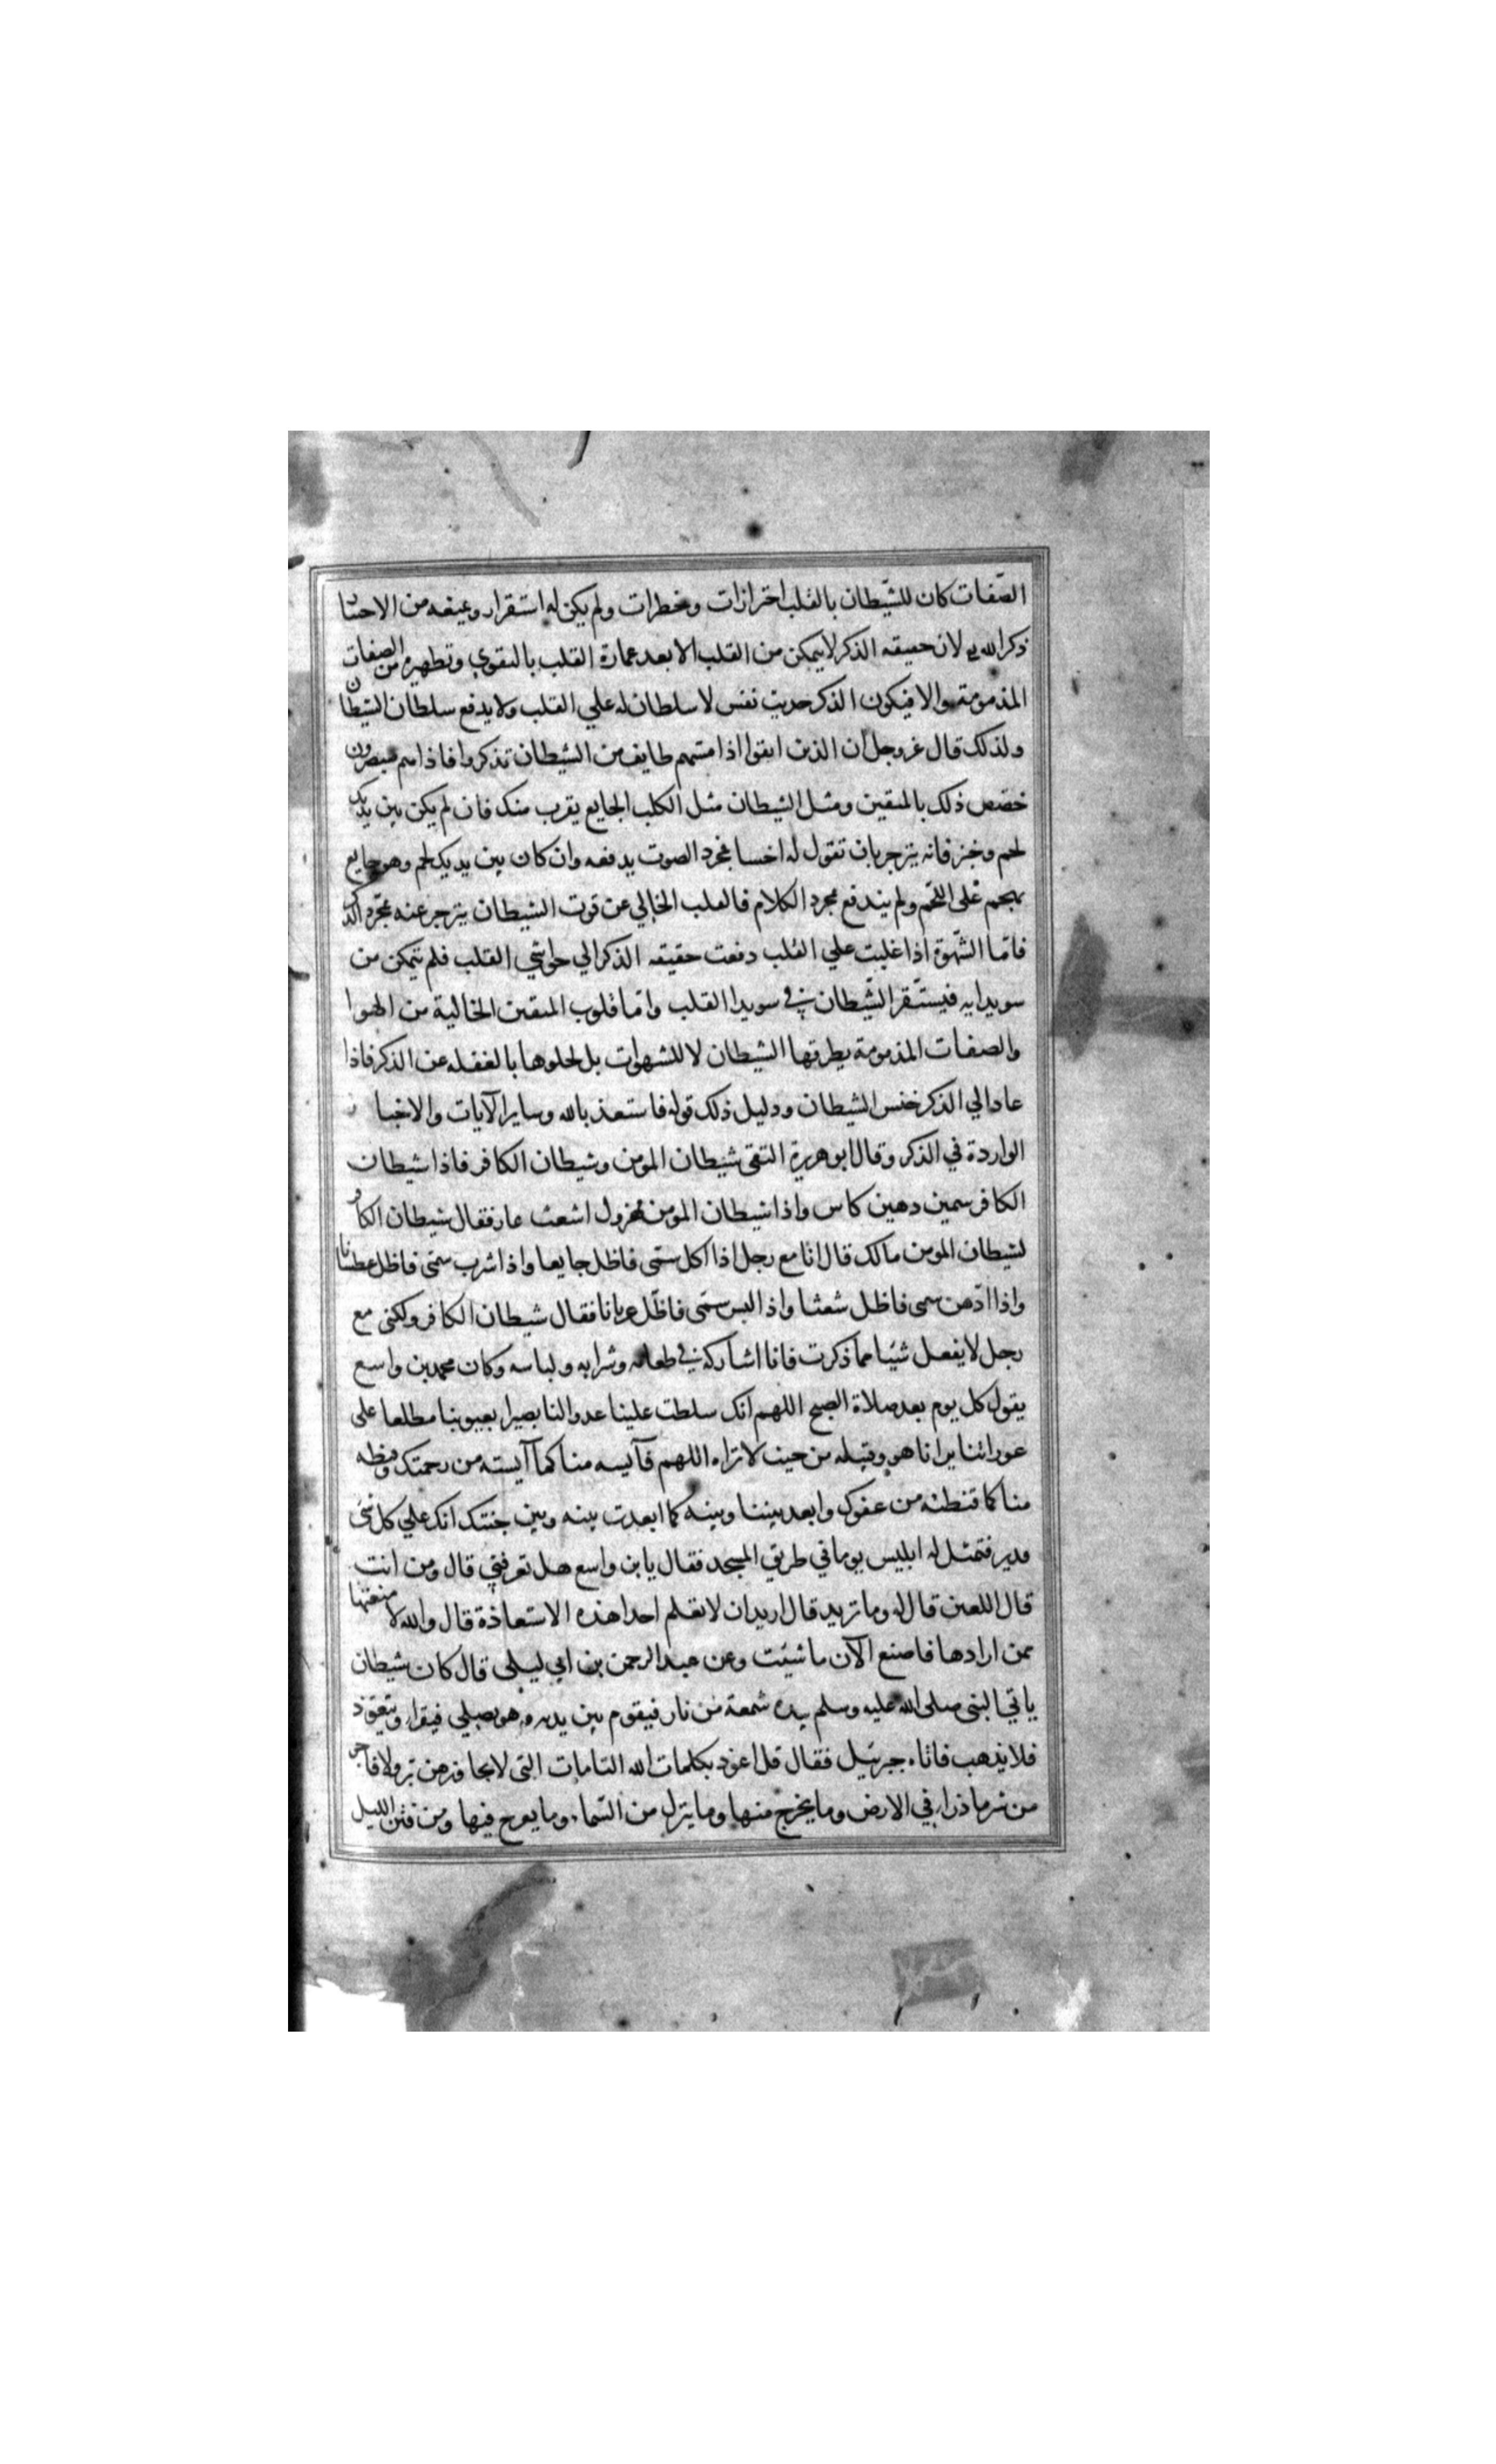 الصّفات كان للشّيطان بالقلب احترازات وخطرات ولم يكن له استقرار ويمنعه من الاحتيا
ذكر الله لان حقيقه الذكر لا يتمكن من القلب الا بعد عمارة القلب بالتقوي وتطهيره من الصفات
المذمومة والا فيكون الذكر حديث نفس لا سلطان له علي القلب ولا يدفع سلطان الشيطان
ولذلك قال عز وجل ان الذين اتقوا اذا مسّهم طايف من الشيطان تذكروا فاذا هم مبصرون
خصّص ذلك بالمتقين ومثل الشيطان مثل الكلب الجايع يقرب منك فان لم يكن بين يديك
لحم وخبز فانه ينزجر بان تقول له اخسا فمجرد الصوت يدفعه وان كان بين يديك لحم وهو جايع
يهجم على اللحم ولم يندفع بمجرد الكلام فالقلب الخالي عن قوت الشيطان ينزجر عنه بمجرد الذكر
فامّا الشّهوة اذا غلبت علي القلب دفعت حقيقه الذكر الي حواشي القلب فلم يتمكن من
سويدايه فيستّقر الشّيطان في سويدا القلب وامّا قلوب المتقين الخالية من الهوا
والصفات المذمومة يطرقها الشيطان لا للشهوات بل لخلوها بالغفله عن الذكر فاذا
عاد الي الذكر خنس الشيطان ودليل ذلك قوله فاستعذ بالله وساير الآيات والاخبار
الواردة في الذكر وقال ابو هريرة التقى شيطان المومن وشيطان الكافر فاذا شيطان
الكافر سمين دهين كاس واذا شيطان المومن مهزول اشعث عار فقال شيطان الكافر
لشيطان المومن مالك قال انا مع رجل اذا اكل سمّى فاظل جايعا واذا شرب سمّى فاظل عطشانا
واذا ادّهن سمى فاظل شعثا واذا لبس سمّى فاظل عريانا فقال شيطان الكافر ولكنى مع
رجل لا يفعل شيئا مما ذكرت فانا اشاركه في طعامه وشرابه ولباسه وكان محمد بن واسع
يقول كل يوم بعد صلاة الصبح اللهم انك سلطت علينا عدوا لنا بصيرا بعيوبنا مطلعا على
عوراتنا يرانا هو وقبيله من حيث لا نراه اللهم فآيسه منا كما آيسته من رحمتك وقنطه
منا كما قنطته من عفوك وابعد بيننا وبينه كما ابعدت بينه وبين جنتك انك علي كل شى
قدير فتمثل له ابليس يوما في طريق المسجد فقال يابن واسع هل تعرفني قال ومن انت
قال اللعين قال له وما تريد قال اريد ان لا تعلم احدا هذه الاستعاذة قال والله لا منعتها
ممن ارادها فاصنع الآن ما شيئت وعن عبد الرحمن بن ابي ليلى قال كان شيطان
ياتي النبى صلى الله عليه وسلم بيده شمعة من نار فيقوم بين يديه وهو يصلي فيقرا ويتعوّذ
فلا يذهب فاتاه جبرئيل فقال قل اعوذ بكلمات الله التامات التى لا يجاوزهن بر ولا فاجر
من شر ما ذرا في الارض وما يخرج منها وما ينزل من السّماء وما يعرج فيها ومن فتن الليل